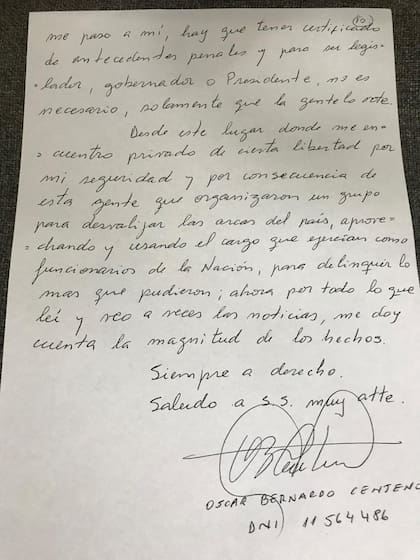 10
me paso a mí, hay que tener certificado
de antecedentes penales y para ser legis-
-lador, gobernador o Presidente, no es
necesario, solamente que la gente lo vote.
Desde este lugar donde me en-
-cuentro privado de cierta libertad por
mi seguridad y por consecuencia de
esta gente que organizaron un grupo
para desvalijar las arcas del país, aprove-
-chando y usando el cargo que ejercían como
funcionarios de la Nación, para delinquir lo
mas que pudieron; ahora por todo lo que
leí y veo a veces las noticias, me doy
cuenta la magnitud de los hechos.
Siempre a derecho.
Saludo a S.S. muy atte.
OSCAR BERNARDO CENTENO
DNI 11564486